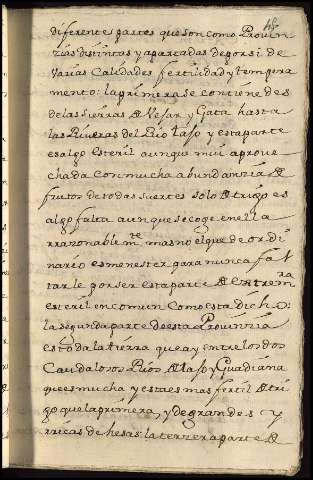 diferentes partes que son como Provin
zias distintas y apartadas de por si de
Varias Calidades fertilidad y tempera
mento: la primera se contiene des
de las sierras de Vejar y Gata hasta
las Riveras del Rio tajo y esta parte
es algo esteril aunque mui aprove
chada con mucha abundanzia de
frutos de todas suertes solo de trigo es
algo falta aunque se coge en ella
rrazonablemte mas no el que de ordi
nario es menester para nunca fal
tarle por ser esta parte de Extremra
esteril en comun Como esta dicho:
la segunda parte de esta Provinzia
es toda la tierra que ay entre los dos
Caudalosos Rios de tajo y Guadiana
que es mucha y esta es mas fertil de tri
go que la primera, y de grandes y
rricas dehesas: la terzera parte de